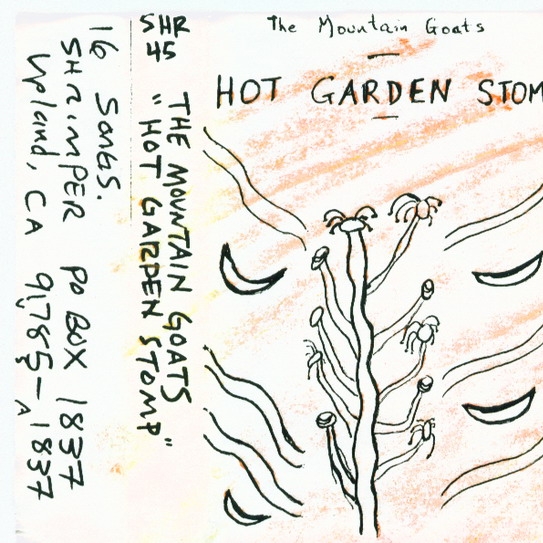 The Mountain Goats
HOT GARDEN STOM
SHR
45
THE MOUNTAIN GOATS
"HOT GARDEN STOMP"
16 SONGS.
SHRIMPER PO BOX 1837
Upland, CA 91785-1837